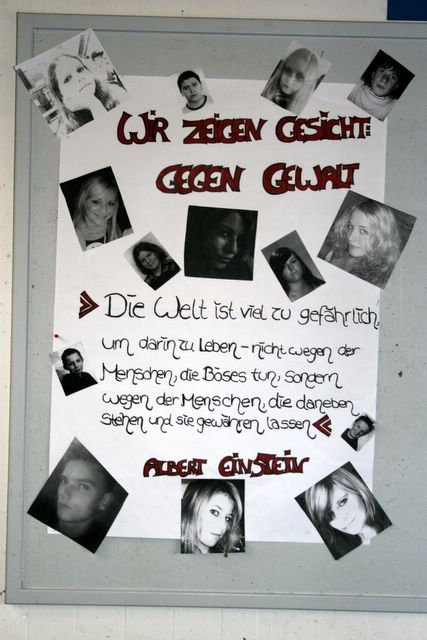 WIR ZEIGEN GESICHT:
GEGEN GEWALT
» Die Welt ist viel zu gefährlich,
um darin zu Leben - nicht wegen der
Menschen, die Böses tun, sondern
wegen der Menschen, die daneben
stehen und sie gewähren lassen «
ALBERT EINSTEIN